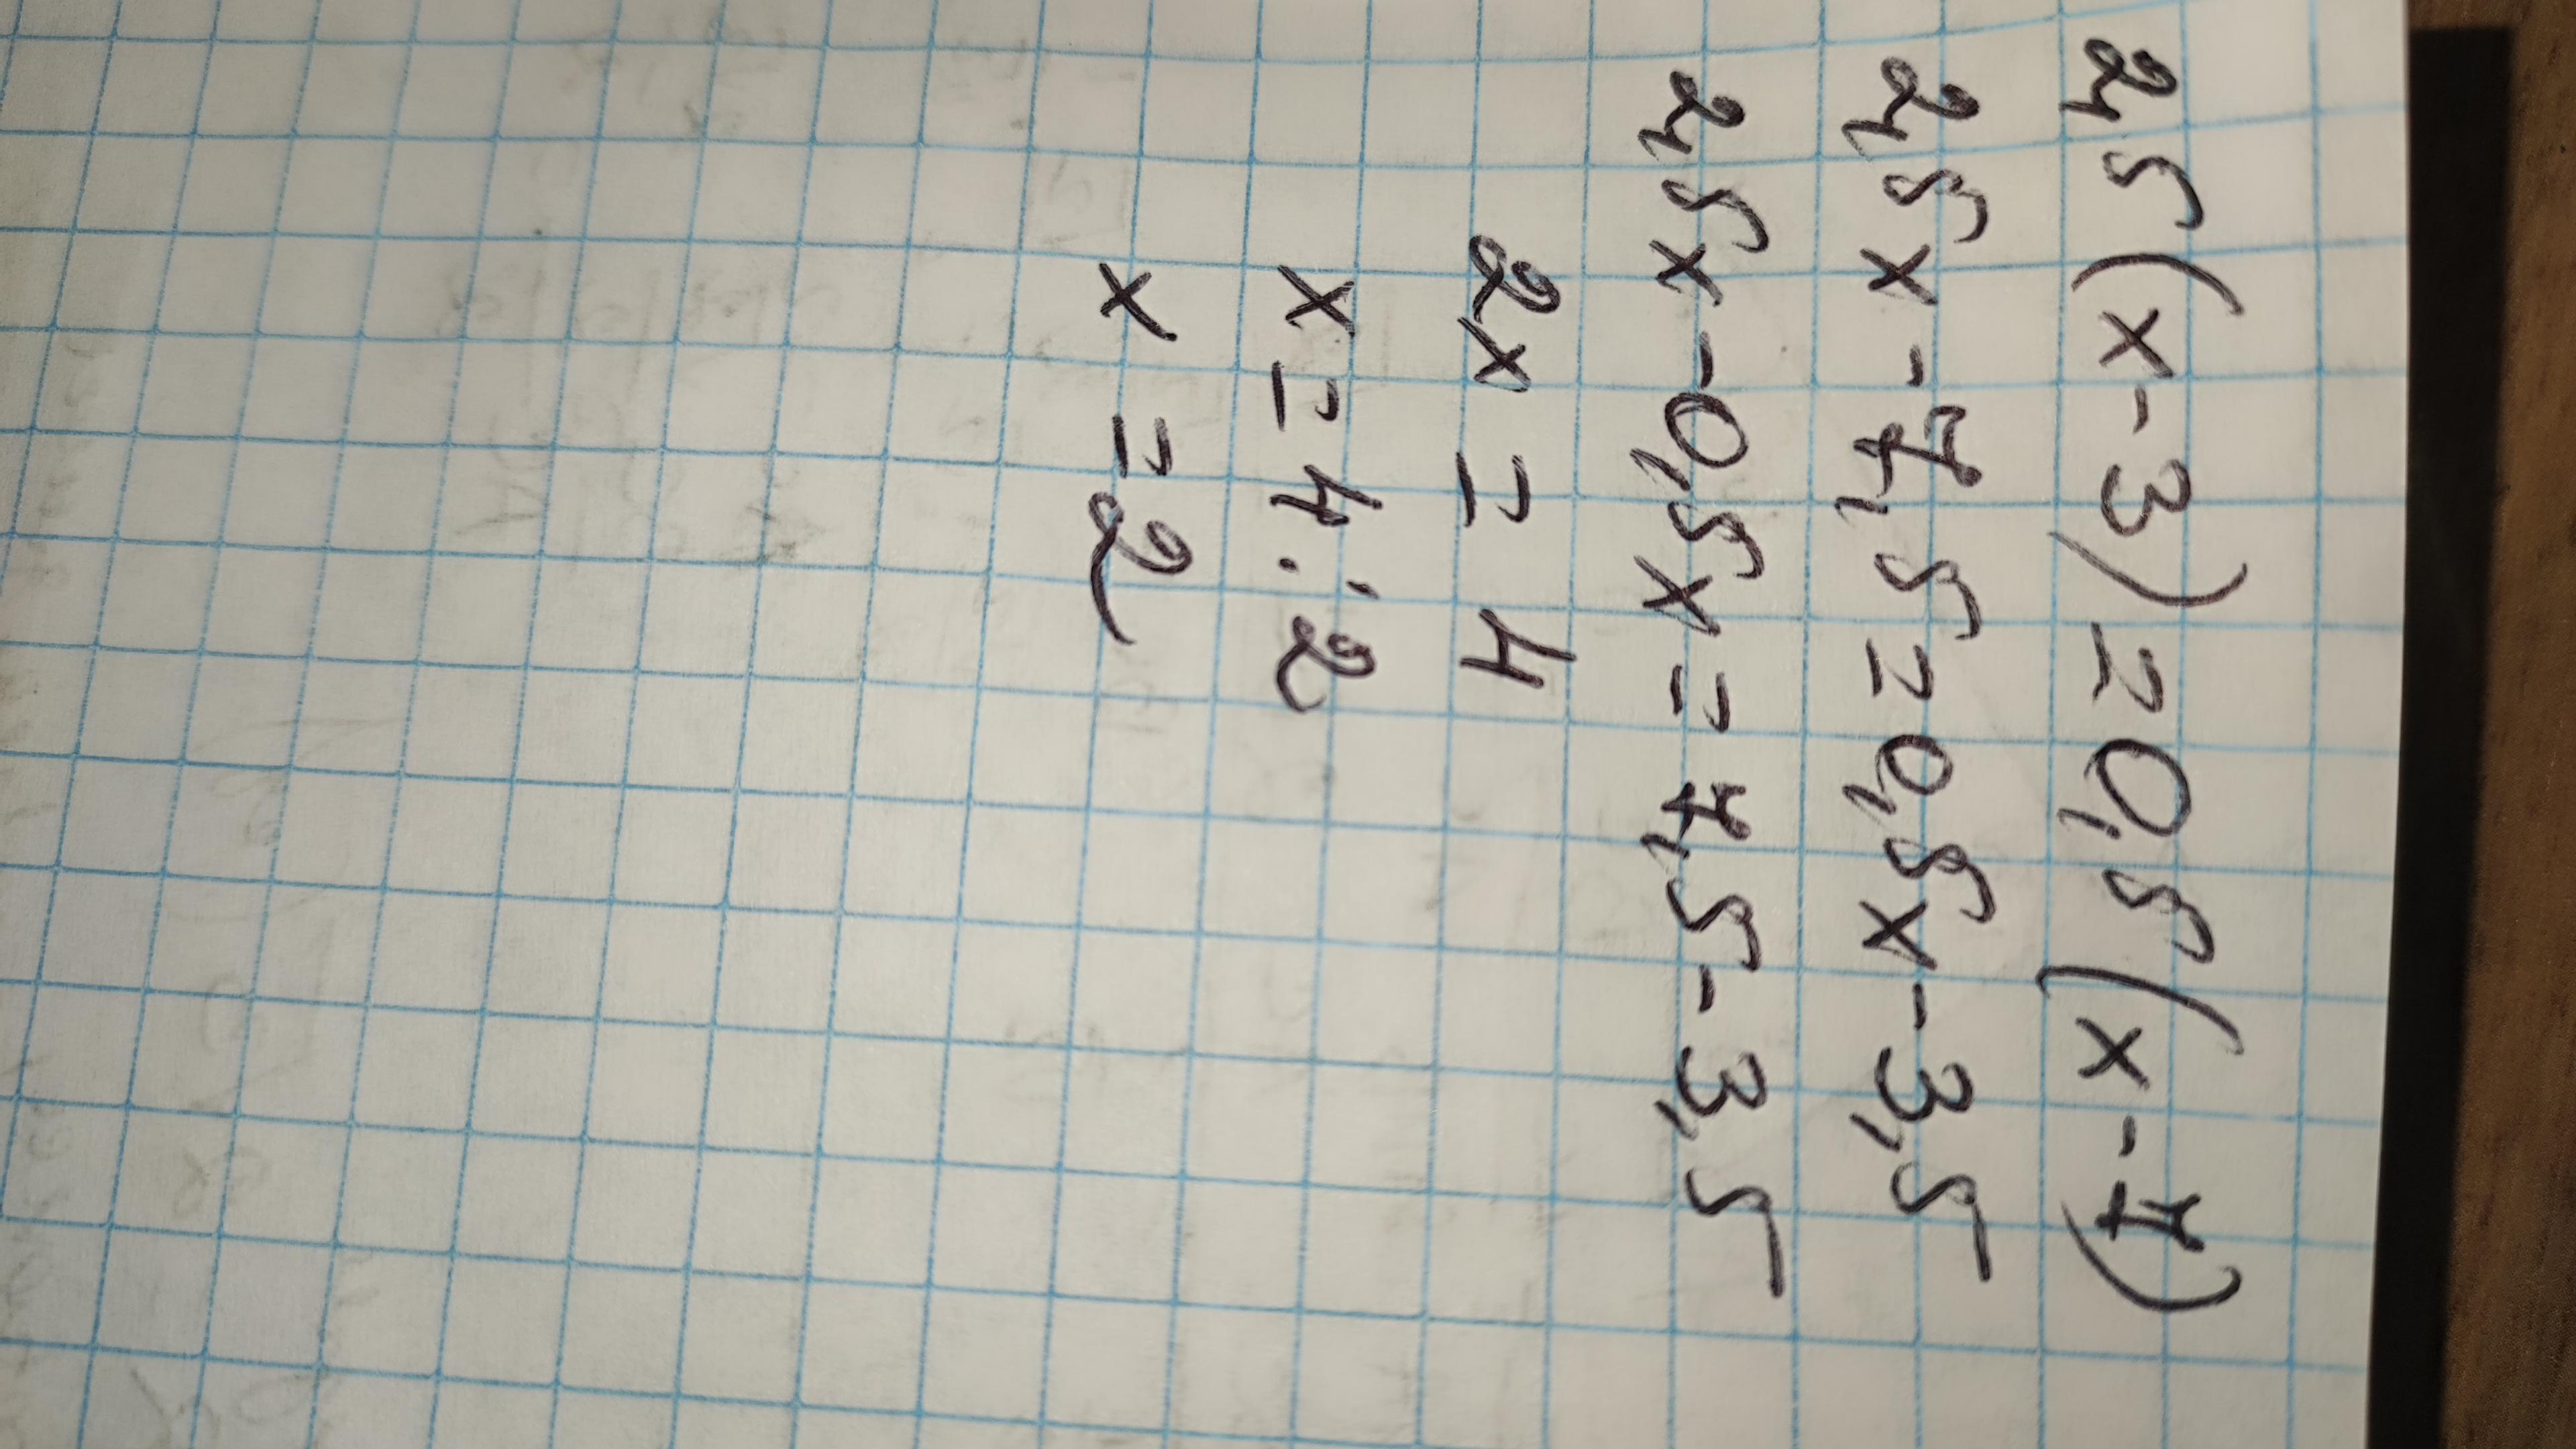 2,5(x-3)=0,5(x-7)
2,5x-7,5=0,5x-3,5
2,5x-0,5x=7,5-3,5
2x=4
x=4:2
x=2